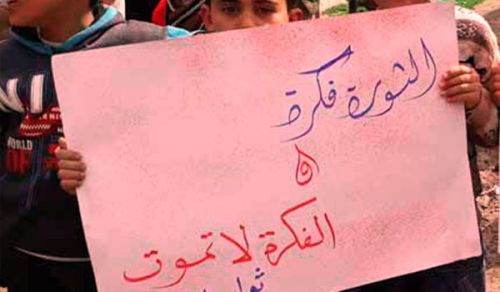 الثورة فكرة
و
الفكرة لا تموت
NI
05